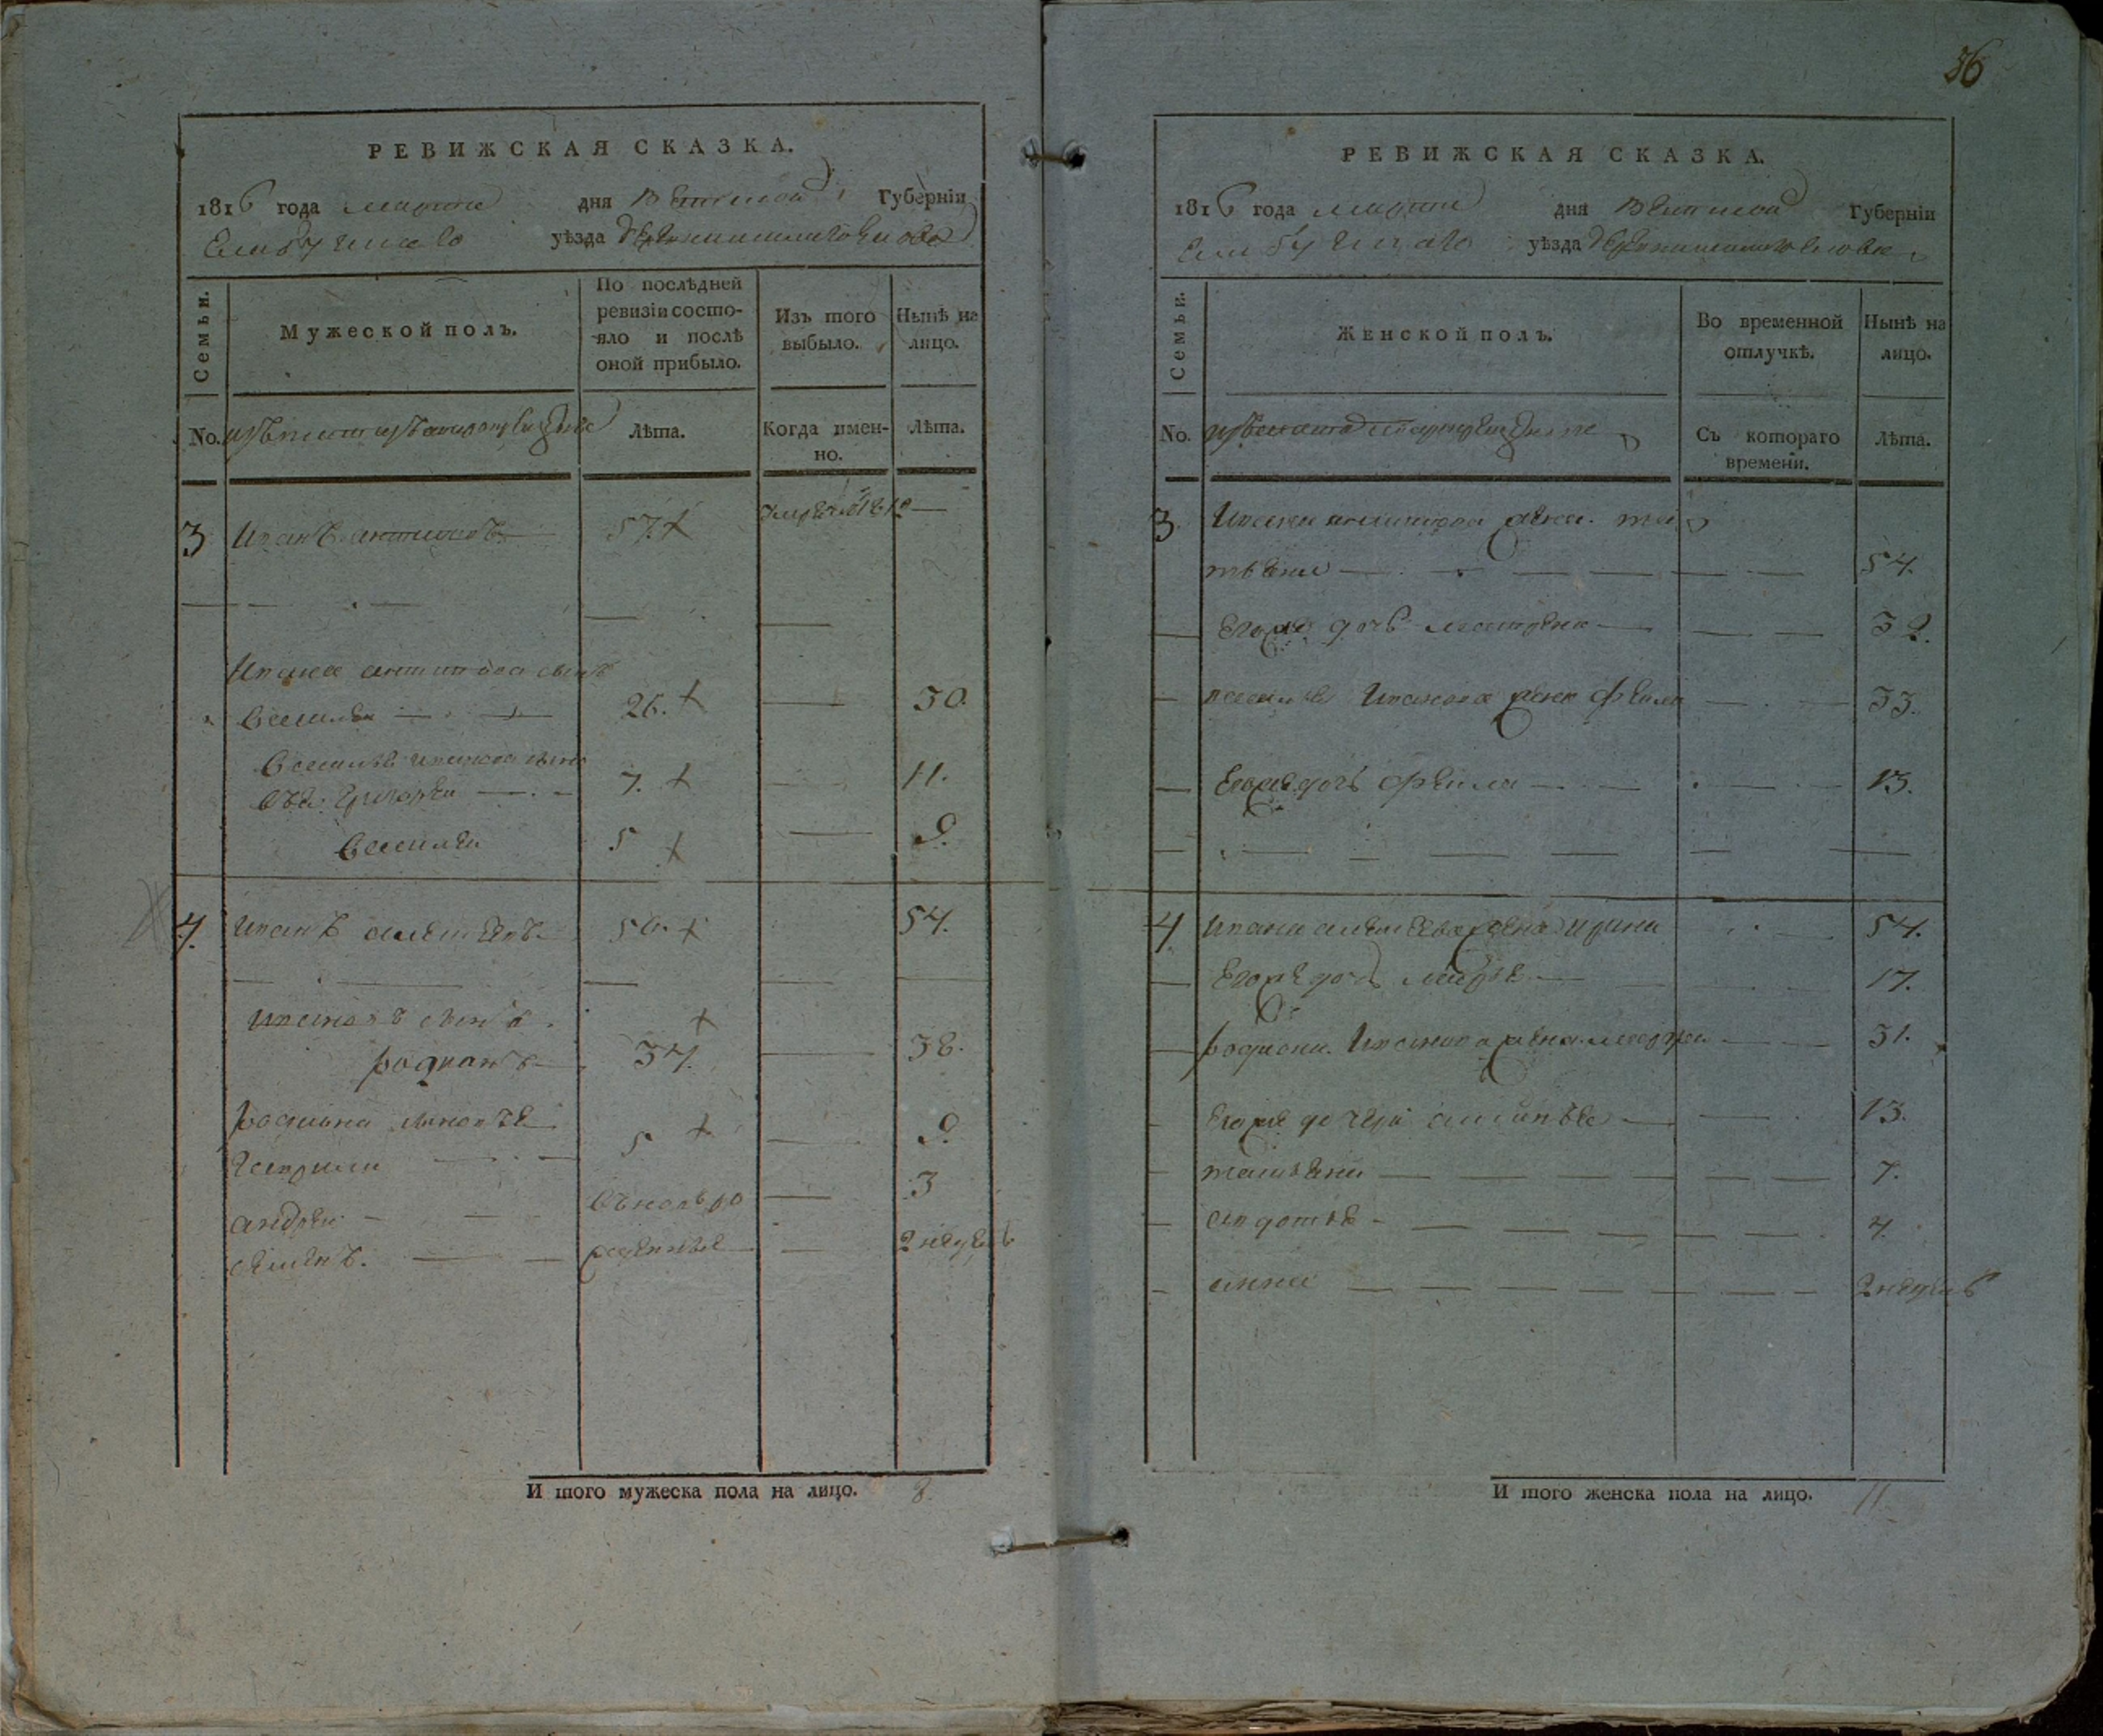 36
РЕВИЖСКАЯ СКАЗКА.
1816 года марта дня Вятской Губерніи
Елабужскаго уѣзда
Семьи.
Мужеской полъ.
По послѣдней ревизіи состо-
яло и послѣ
оной прибыло.
Изъ того
выбыло.
Нынѣ на
лицо.
No.
Лѣта.
Когда имен-
но.
Лѣта.
3 Иванъ антиповъ 57. умре 1812
Ивана антипова сынъ
Василеи 26. 30.
Василья иванова
Григореи 7. 11.
Василеи 5 9.
4. Иванъ алексѣевъ 50. 54.
Ивановъ сынъ
родионъ 34. 38.
родиона сыновье
Гаврила 5 9.
андреи 3
семенъ. 2 недѣль
И того мужеска пола на лицо. 8
РЕВИЖСКАЯ СКАЗКА.
1816 года марта дня Вятской Губерніи
Елабужскаго уѣзда
Семьи.
Женской полъ.
Во временной
отлучкѣ.
Нынѣ на
лицо.
No.
Съ котораго
времени.
Лѣта.
3. Ивана антипова жена та
тьяна 54.
Егоже дочь матрена 32.
василья Иванова жена фекла 33.
Егоже дочь фекла 13.
4 ивана алексѣева жена ирина 54.
Егоже дочь марья 17.
родиона Иванова жена марья 31.
Егоже дочери 13.
татьяна 7.
авдотья 4.
анна 2 недель
И того женска пола на лицо. 11